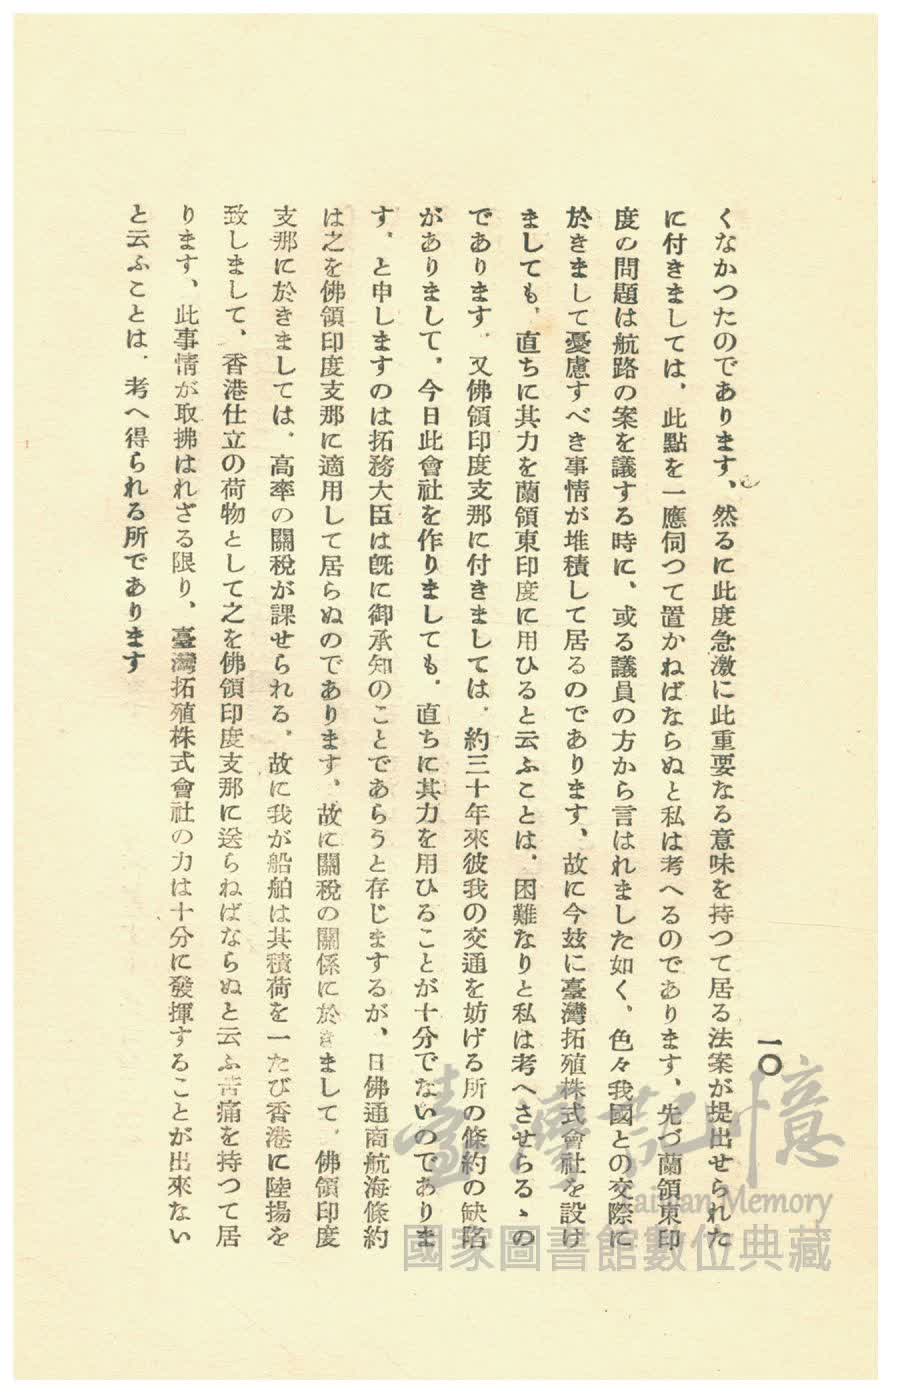 一〇
くなかつたのであります、然るに此度急激に此重要なる意味を持つて居る法案が提出せられた
に付きましては、此點を一應伺つて置かねばならぬと私は考へるのであります、先づ蘭領東印
度の問題は航路の案を議する時に、或る議員の方から言はれました如く、色々我國との交際に
於きまして憂慮すべき事情が堆積して居るのであります、故に今玆に臺灣拓殖株式會社を設け
ましても、直ちに其力を蘭領東印度に用ひると云ふことは、困難なりと私は考へさせらるゝの
であります、又佛領印度支那に付きましては、約三十年來彼我の交通を妨げる所の條約の缺陷
がありまして、今日此會社を作りましても、直ちに其力を用ひることが十分でないのでありま
す、と申しますのは拓務大臣は既に御承知のことであらうと存じまするが、日佛通商航海條約
は之を佛領印度支那に適用して居らぬのであります、故に關稅の關係に於きまして、佛領印度
支那に於きましては、高率の關稅が課せられる、故に我が船舶は其積荷を一たび香港に陸揚を
致しまして、香港仕立の荷物として之を佛領印度支那に送らねばならぬと云ふ苦痛を持つて居
ります、此事情が取拂はれざる限り、臺灣拓殖株式會社の力は十分に發揮することが出來ない
と云ふことは、考へ得られる所であります
臺灣記憶
Taiwan Memory
國家圖書館數位典藏